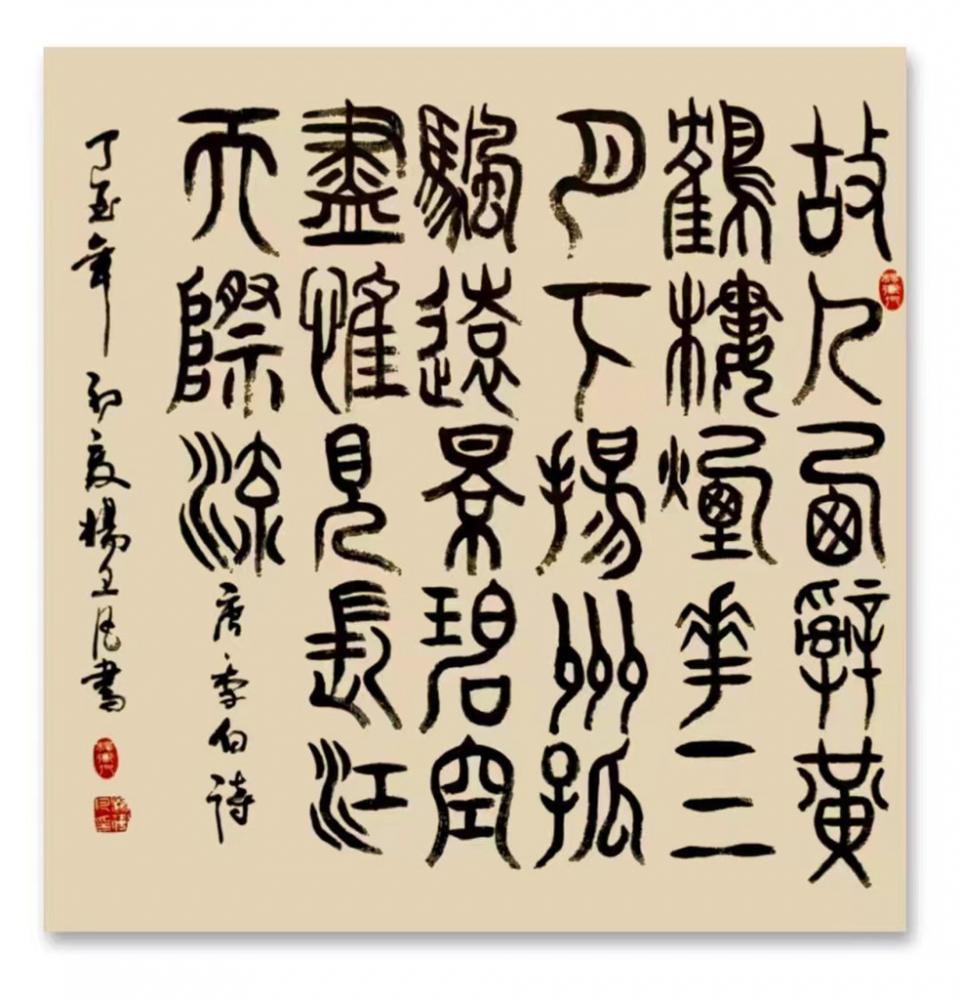 故人西辭黃
鶴樓煙華三
月下揚州孤
颿遠景碧空
盡惟見長江
天際流唐李白詩
丁年初夏楊書